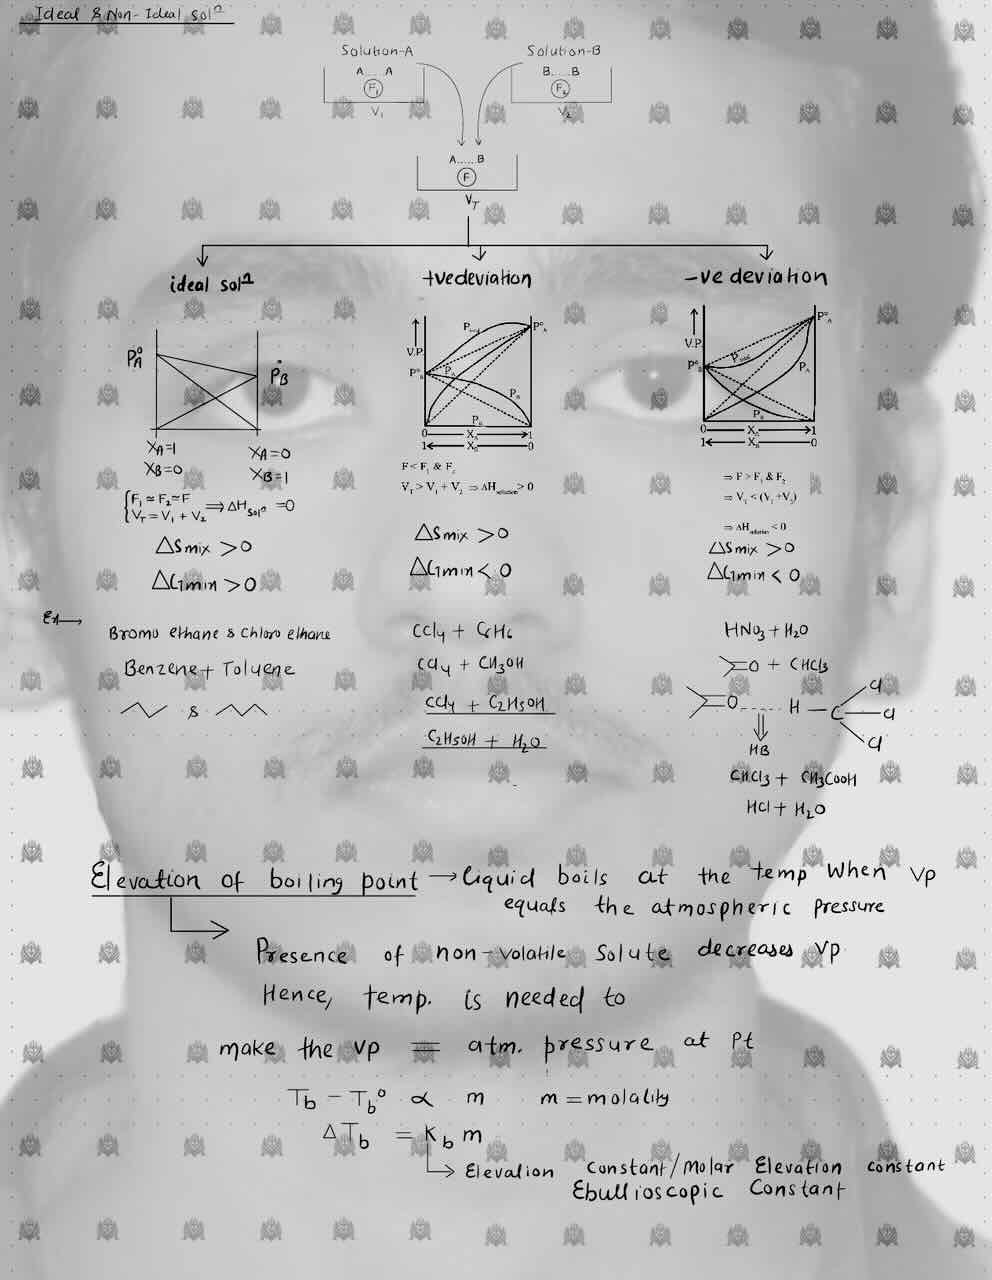 Ideal & Non-Ideal solⁿ
Solution-A
Solution-B
A.....A
B.....B
F₁
F₂
V₁
V₂
A.....B
F
V_T
ideal solⁿ
+ve deviation
-ve deviation
P°A
P°B
X_A=1
X_B=0
X_A=0
X_B=1
{F₁ ≃ F₂ ≃ F
V_T = V₁ + V₂ ⟹ ΔH solⁿ = 0
ΔSmix > 0
ΔGmin > 0
V.P.
P°A
P_A
P_B
0 X_A 1
1 X_B 0
F < F₁ & F₂
V_T > V₁ + V₂ ⇒ ΔH solution > 0
ΔSmix > 0
ΔGmin < 0
V.P.
P°A
P_A
0 1
1 0
⇒ F > F₁ & F₂
⇒ V_T < (V₁ + V₂)
⇒ ΔH solution < 0
ΔSmix > 0
ΔGmin < 0
Ex→
Bromo ethane & Chloro ethane
Benzene + Toluene
&
CCl₄ + C₆H₆
CCl₄ + CH₃OH
CCl₄ + C₂H₅OH
C₂H₅OH + H₂O
HNO₃ + H₂O
=O + CHCl₃
=O ---- H — C — Cl
Cl
Cl
HB
CHCl₃ + CH₃COOH
HCl + H₂O
Elevation of boiling point → Liquid boils at the temp When VP
equals the atmospheric pressure
Presence of non-volatile Solute decreases VP
Hence, temp. is needed to
make the VP = atm. pressure at Pt
T_b − T_b° ∝ m m = molality
ΔT_b = K_b m
→ Elevation Constant/Molar Elevation constant
Ebullioscopic Constant